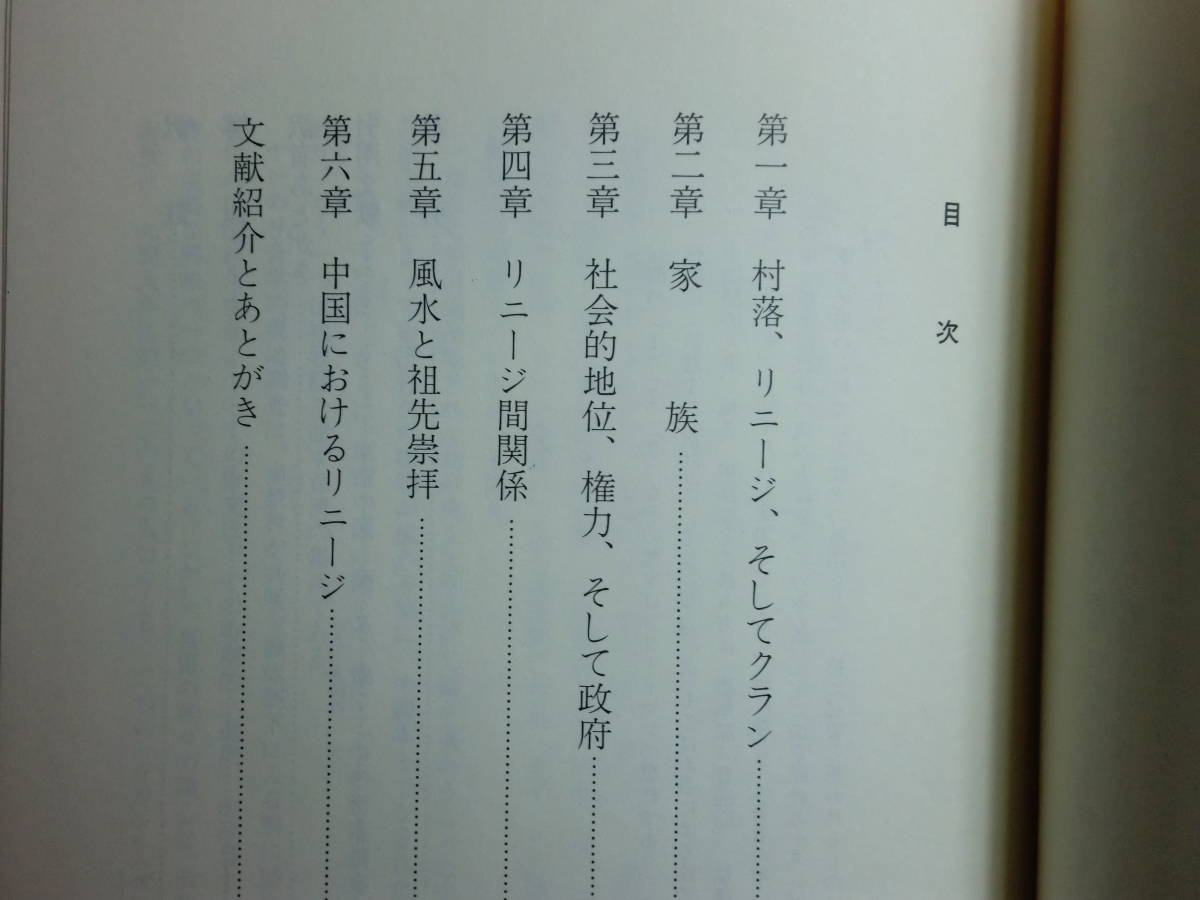 目次
第一章 村落、リニージ、そしてクラン……………
第二章 家族……………
第三章 社会的地位、権力、そして政府……………
第四章 リニージ間関係……………
第五章 風水と祖先崇拝……………
第六章 中国におけるリニージ……………
文献紹介とあとがき……………